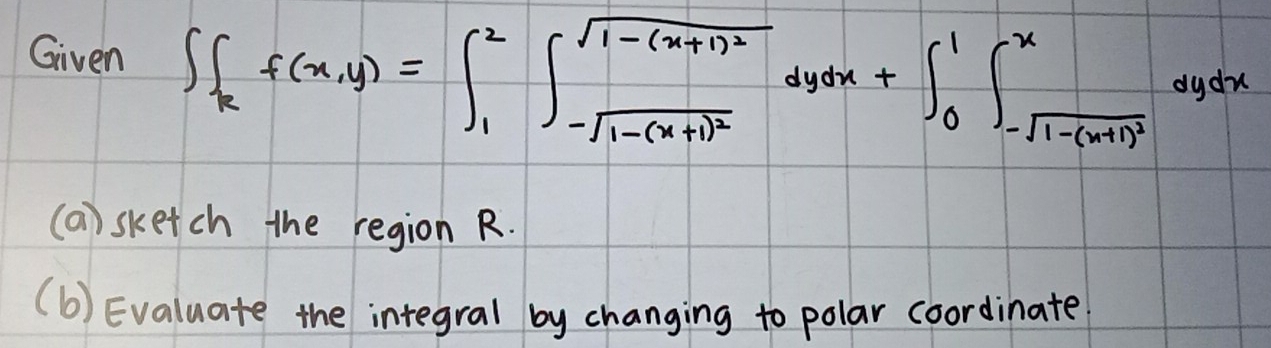 Given ∬_R f(x,y) = ∫_1^2 ∫_{-√(1-(x+1)²)}^{√(1-(x+1)²)} dydx + ∫_0^1 ∫_{-√(1-(x+1)²)}^x dydx
(a) sketch the region R.
(b) Evaluate the integral by changing to polar coordinate.